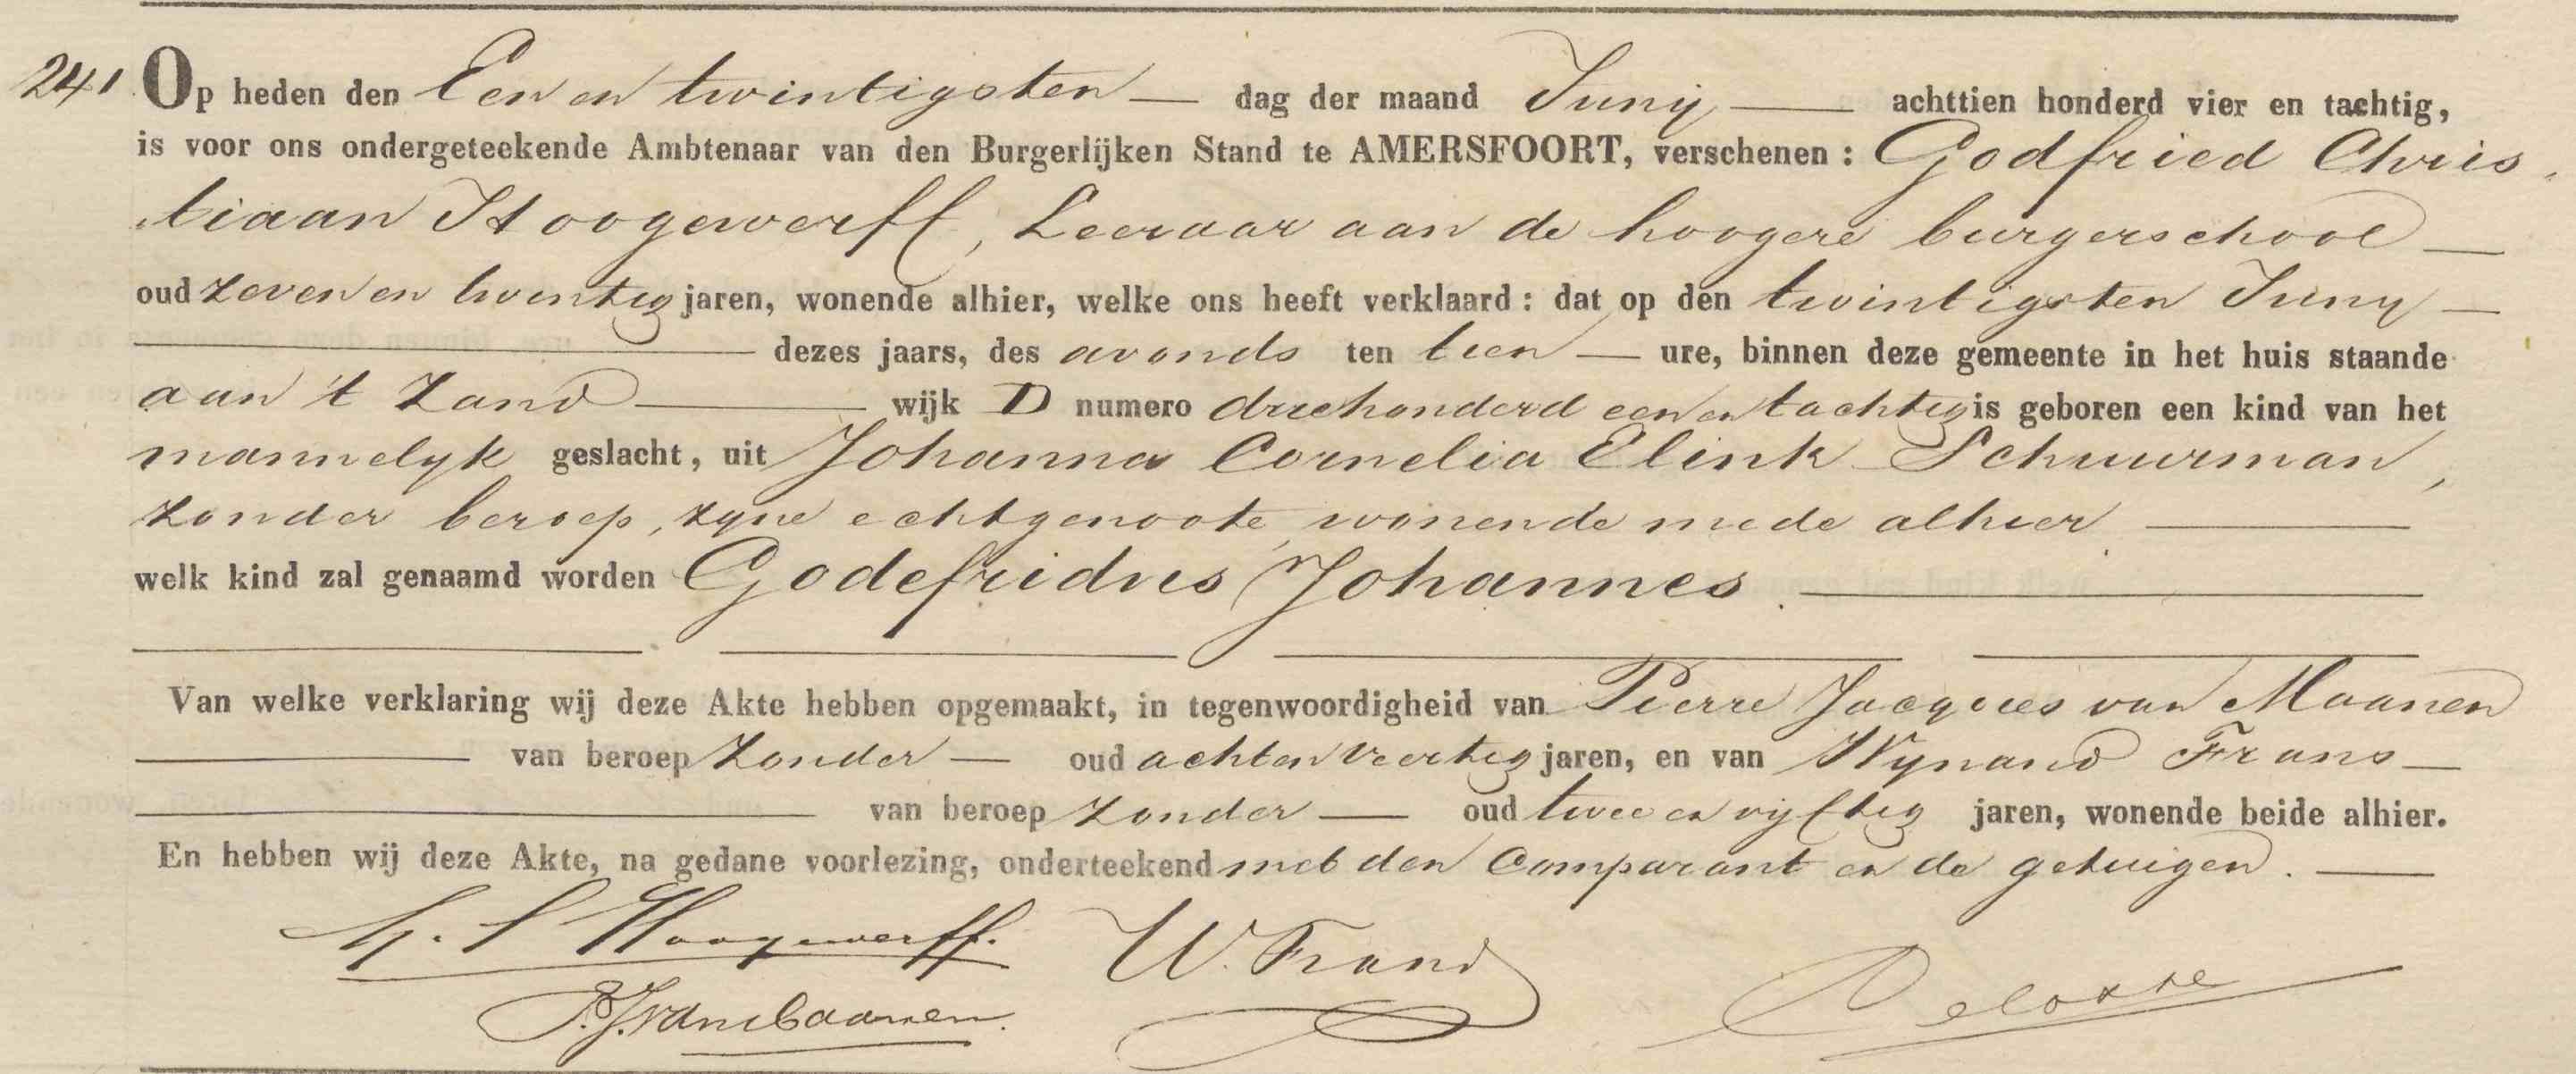 241 Op heden den Een en twintigsten — dag der maand Junij — achttien honderd vier en tachtig,
is voor ons ondergeteekende Ambtenaar van den Burgerlijken Stand te AMERSFOORT, verschenen : Godfried Chris
tiaan Hoogewerff, Leeraar aan de hoogere burgerschool —
oud zeven en twintig jaren, wonende alhier, welke ons heeft verklaard : dat op den twintigsten Juny —
— dezes jaars, des avonds ten tien — ure, binnen deze gemeente in het huis staande
aan 't Zand — wijk D numero driehonderd een en tachtig is geboren een kind van het
mannelyk geslacht, uit Johanna Cornelia Elink Schuurman,
zonder beroep, zyne echtgenoote, wonende mede alhier —
welk kind zal genaamd worden Godefridus Johannes. —
Van welke verklaring wij deze Akte hebben opgemaakt, in tegenwoordigheid van Pierre Jacques van Maanen
— van beroep zonder — oud acht en veertig jaren, en van Wynand Frans —
— van beroep zonder — oud twee en vijftig jaren, wonende beide alhier.
En hebben wij deze Akte, na gedane voorlezing, onderteekend met den Comparant en de getuigen. —
G. C Hoogewerff. W. Frans
P. J. van Maanen.